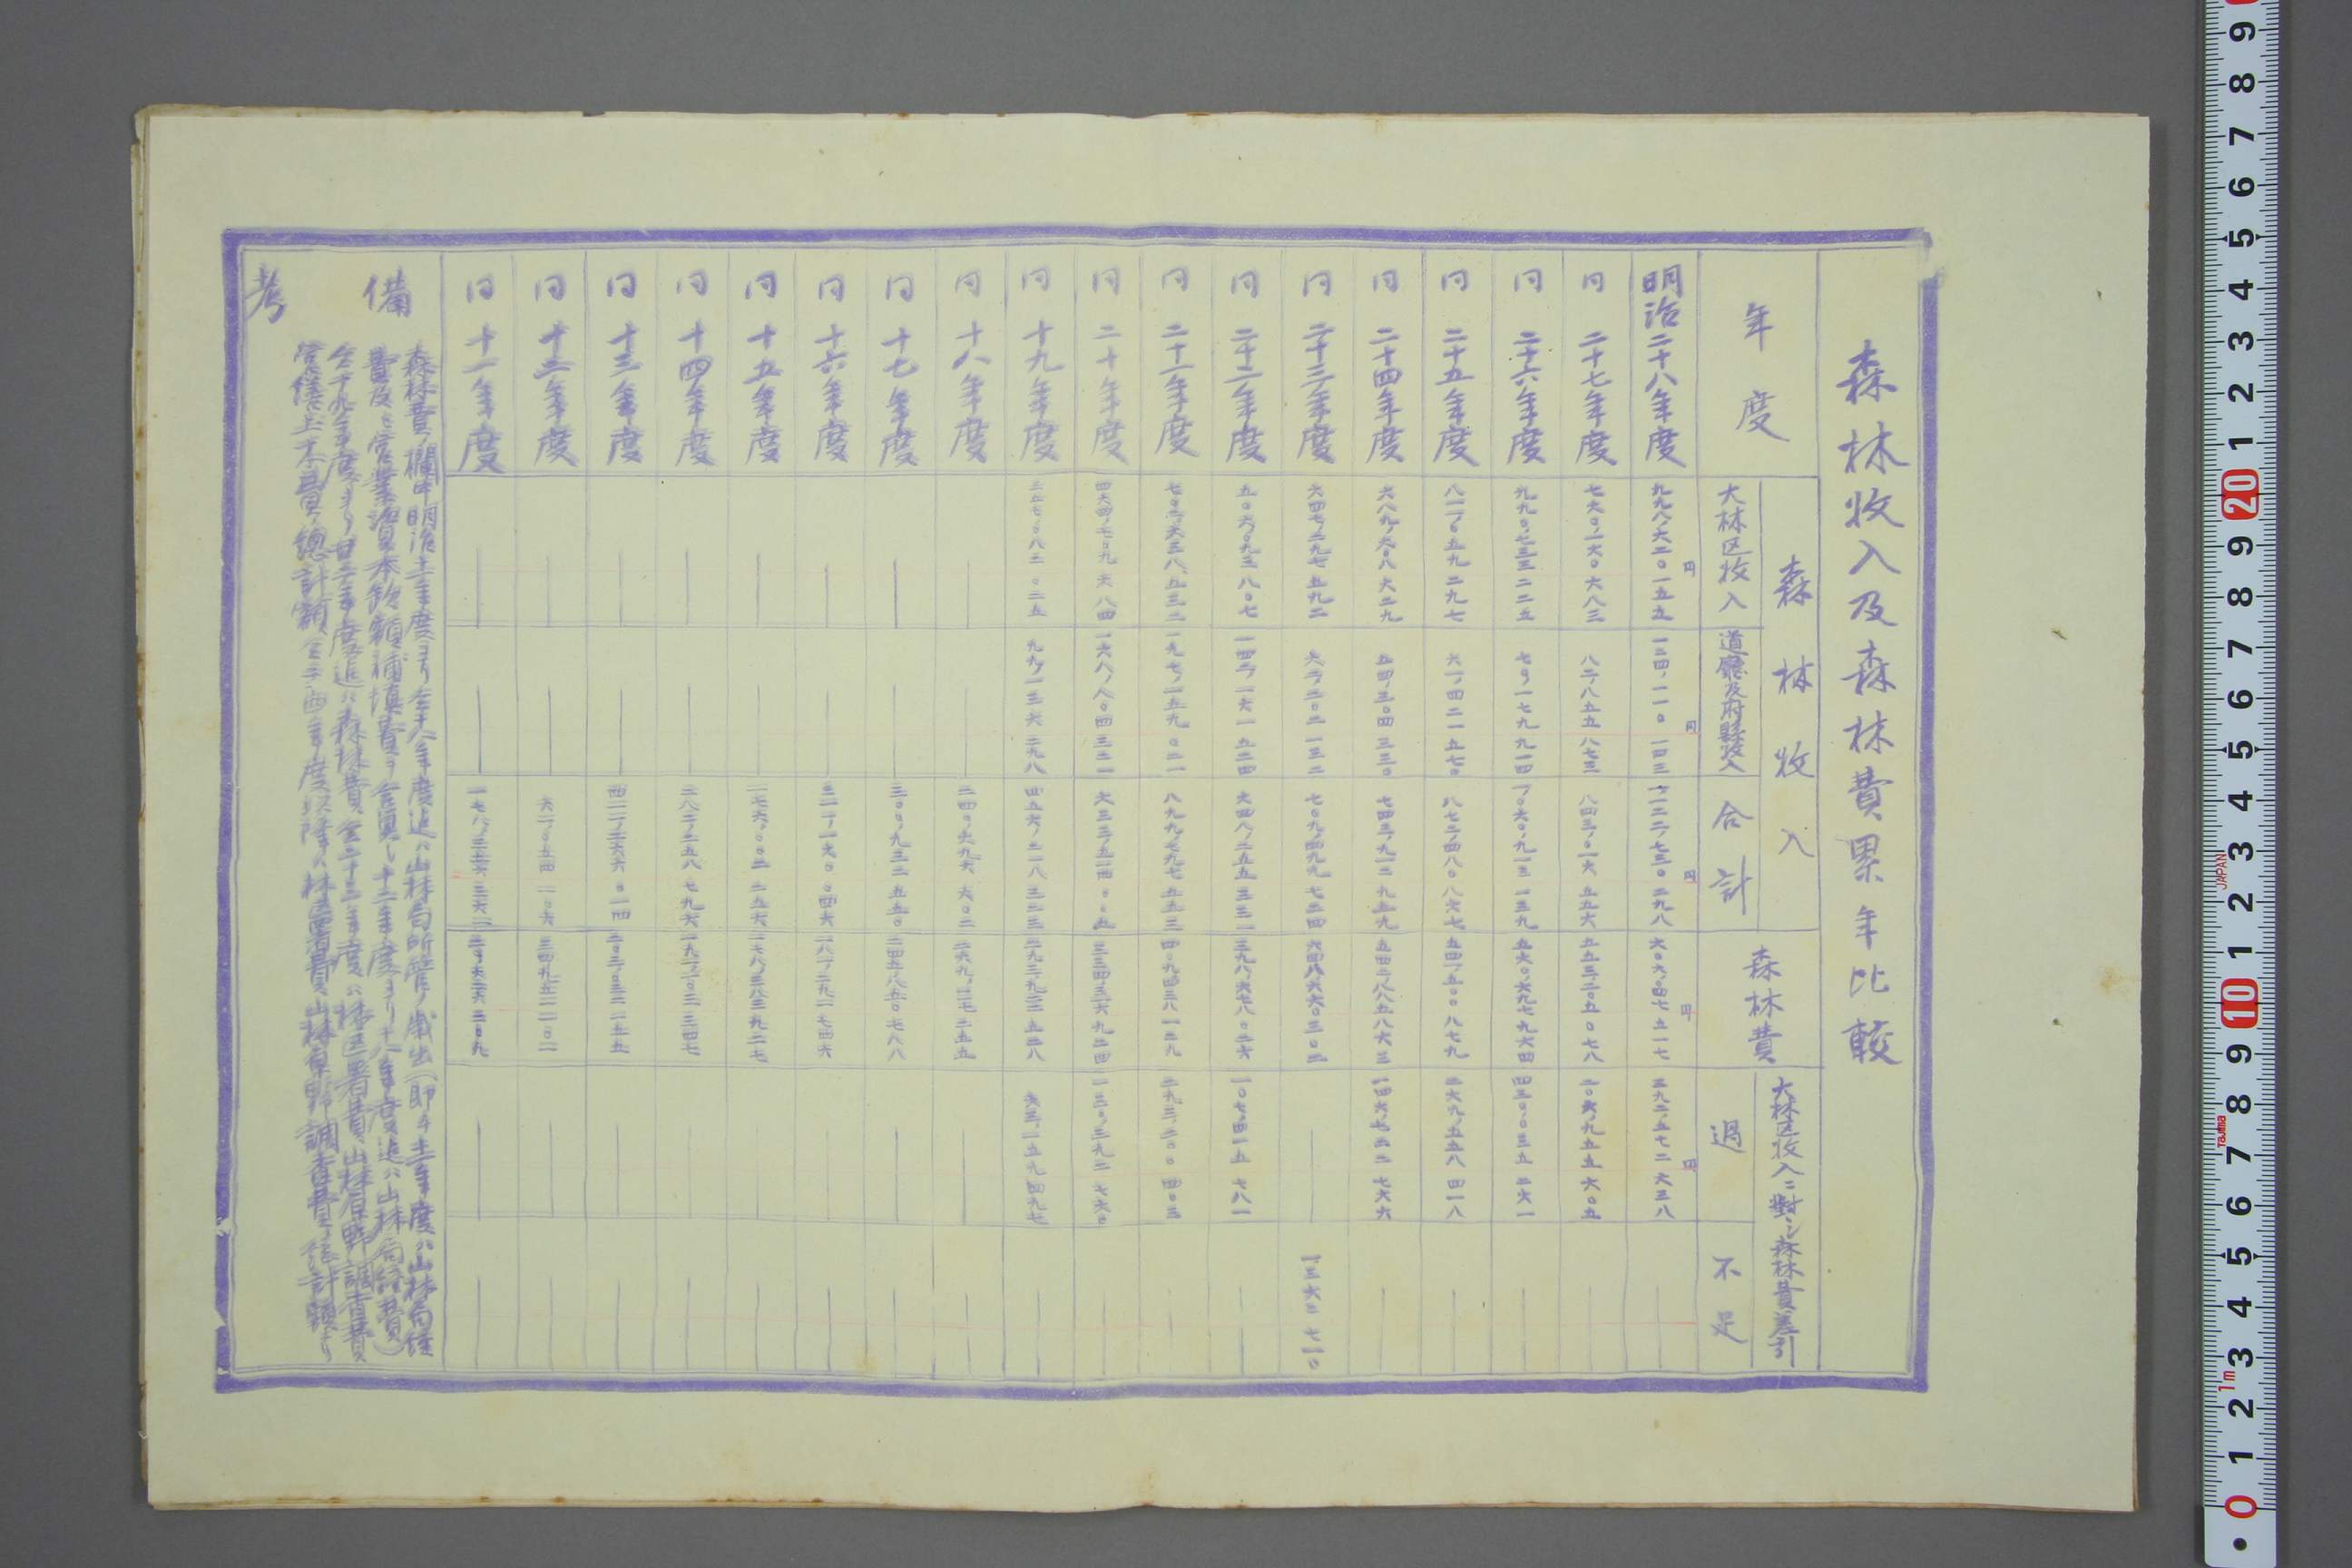 森林收入及森林費累年比較
年度
森林收入
大林区收入
道廳及府縣收入
合計
森林費
大林区收入ニ對シ森林費差引
過
不足
明治二十八年度 九九八、六二〇 一五五 一二四、一一〇 一四三 一、一二二、七三〇 二九八 六〇六、〇四七 五一七 三九二、五七二 六三八 ―
円 円 円 円 円
同 二十七年度 七六〇、一六〇 六八三 八二、八五五 八七三 八四三、〇一六 五五六 五五三、二〇五 〇七八 二〇六、九五五 六〇五 ―
同 二十六年度 九九〇、七三三 二二五 七〇、一七九 九一四 一、〇六〇、九一三 一三九 五六〇、六九七 九六四 四三〇、〇三五 二六一 ―
同 二十五年度 八一一、〇五九 二九七 六一、四二一 五七〇 八七二、四八〇 八六七 五四一、五〇〇 八七九 二六九、五五八 四一八 ―
同 二十四年度 六八九、六〇八 六二九 五四、三〇四 三三〇 七四三、九一二 九五九 五四二、八八五 八六三 一四六、七二二 七六六 ―
同 二十三年度 六四七、二九七 五九二 六二、二〇二 一三二 七〇九、四九九 七二四 六四八、六六〇 三〇二 ― 一、三六二 七一〇
同 二十二年度 五〇六、〇九三 八〇七 一四二、一六一 五二四 六四八、二五五 三三一 三九八、六七八 〇二六 一〇七、四一五 七八一 ―
同 二十一年度 七〇二、六三八 五三二 一九七、一五九 〇二一 八九九、七九七 五五三 四〇九、四三八 一二九 二九三、二〇〇 四〇三 ―
同 二十年度 四六四、七〇九 六八四 一六八、八〇四 三二一 六三三、五一四 〇〇五 三三四、三一六 九二四 一三〇、三九二 七六〇 ―
同 十九年度 三五七、〇八二 〇二五 九九、一三六 二九八 四五六、二一八 三二三 二九三、九二二 五二八 六三、一五九 四九七 ―
同 十八年度 ― ― 二四〇、六九六 六〇二 二六九、二一七 二五五 ― ―
同 十七年度 ― ― 三〇〇、九三二 五五〇 二四五、八五〇 七八八 ― ―
同 十六年度 ― ― 三一一、一六〇 〇四六 一八一、二九一 七四六 ― ―
同 十五年度 ― ― 二七六、〇〇二 二五六 一七八、三八三 九二七 ― ―
同 十四年度 ― ― 二八二、二五八 七九六 一九一、一〇三 三四七 ― ―
同 十三年度 ― ― 四二一、二六六 〇一四 二〇三、〇三二 一五五 ― ―
同 十二年度 ― ― 六一一、〇五四 一〇六 三四九、五二一 一〇一 ― ―
同 十一年度 ― ― 一七八、三五六 三六二 二〇、六三六 三〇九 ― ―
備考
森林費ノ欄中明治十一年度ヨリ仝十八年度迄ハ山林局所管ノ歳出(即チ十一年度ハ山林局経
費及ヒ営業資本欠額補填費ヲ合算シ十二年度ヨリ十八年度迄ハ山林局経費)
仝十九年度ヨリ廿二年度迄ハ森林費仝二十三年度ハ林区署費、山林原野調査費
営繕土木費ノ總計額仝二十四年度以降ハ林区署費、山林原野調査費ノ總計額ナリ